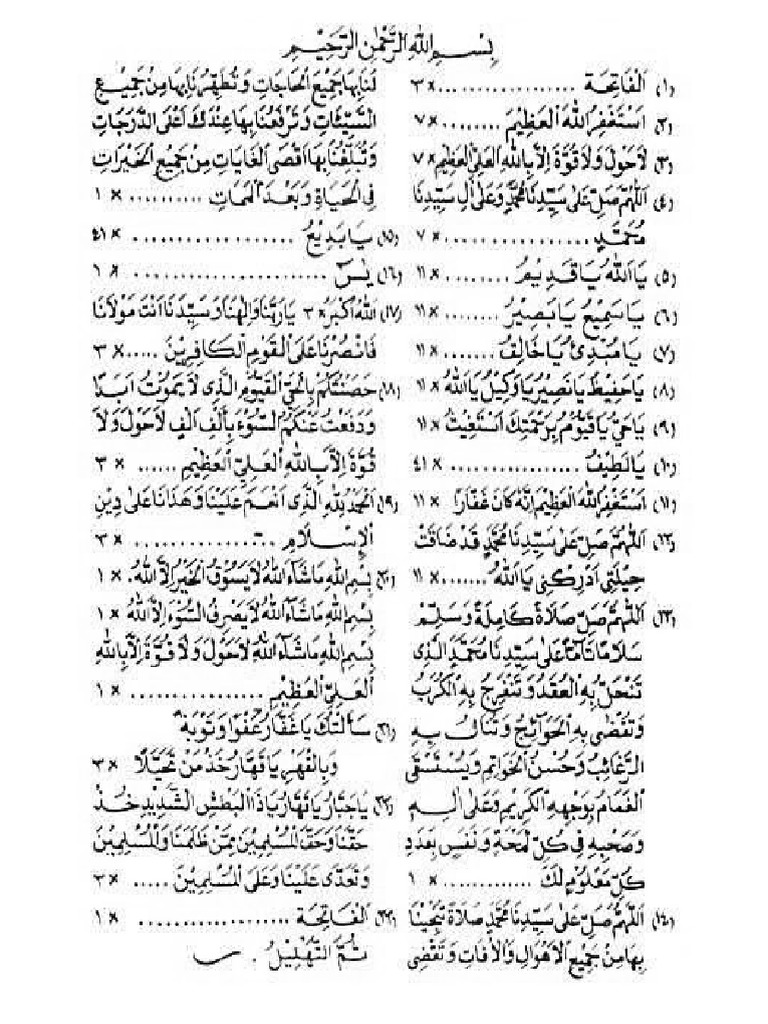 بِسْمِ اللهِ الرَّحْمٰنِ الرَّحِيْمِ
(١) اَلْفَاتِحَة .................. × ٣
(٢) اَسْتَغْفِرُ اللهَ الْعَظِيْمَ ........ × ٧
(٣) لَاحَوْلَ وَلَا قُوَّةَ اِلَّا بِاللهِ الْعَلِيِّ الْعَظِيْمِ × ٧
(٤) اَللّٰهُمَّ صَلِّ عَلٰى سَيِّدِنَا مُحَمَّدٍ وَعَلٰى اٰلِ سَيِّدِنَا
مُحَمَّدٍ .................. × ٧
(٥) يَااَللهُ يَاقَدِيْمُ ........ × ١١
(٦) يَاسَمِيْعُ يَابَصِيْرُ ........ × ١١
(٧) يَامُبْدِئُ يَاخَالِقُ ........ × ١١
(٨) يَاحَفِيْظُ يَانَصِيْرُ يَاوَكِيْلُ يَااَللهُ × ١١
(٩) يَاحَيُّ يَاقَيُّوْمُ بِرَحْمَتِكَ اَسْتَغِيْثُ × ١١
(١٠) يَالَطِيْفُ ................ × ٤١
(١١) اَسْتَغْفِرُ اللهَ الْعَظِيْمَ اِنَّهُ كَانَ غَفَّارًا × ١١
(١٢) اَللّٰهُمَّ صَلِّ عَلٰى سَيِّدِنَا مُحَمَّدٍ قَدْ ضَاقَتْ
حِيْلَتِيْ اَدْرِكْنِيْ يَااَللهُ ....... × ١١
(١٣) اَللّٰهُمَّ صَلِّ صَلَاةً كَامِلَةً وَسَلِّمْ
سَلَامًا تَامًّا عَلٰى سَيِّدِنَا مُحَمَّدٍ الَّذِيْ
تَنْحَلُّ بِهِ الْعُقَدُ وَتَنْفَرِجُ بِهِ الْكُرَبُ
وَتُقْضٰى بِهِ الْحَوَائِجُ وَتُنَالُ بِهِ
الرَّغَائِبُ وَحُسْنُ الْخَوَاتِمِ وَيُسْتَسْقَى
الْغَمَامُ بِوَجْهِهِ الْكَرِيْمِ وَعَلٰى اٰلِهِ
وَصَحْبِهِ فِيْ كُلِّ لَمْحَةٍ وَنَفَسٍ بِعَدَدِ
كُلِّ مَعْلُوْمٍ لَكَ ............ × ١
(١٤) اَللّٰهُمَّ صَلِّ عَلٰى سَيِّدِنَا مُحَمَّدٍ صَلَاةً تُنْجِيْنَا
بِهَا مِنْ جَمِيْعِ الْاَهْوَالِ وَالْاٰفَاتِ وَتَقْضِيْ
لَنَا بِهَا جَمِيْعَ الْحَاجَاتِ وَتُطَهِّرُنَا بِهَا مِنْ جَمِيْعِ
السَّيِّئَاتِ وَتَرْفَعُنَا بِهَا عِنْدَكَ اَعْلَى الدَّرَجَاتِ
وَتُبَلِّغُنَا بِهَا اَقْصَى الْغَايَاتِ مِنْ جَمِيْعِ الْخَيْرَاتِ
فِى الْحَيَاةِ وَبَعْدَ الْمَمَاتِ .......... × ١
(١٥) يَابَدِيْعُ .................... × ٤١
(١٦) يٰسٓ ........................ × ١
(١٧) اَللهُ اَكْبَرُ × ٣ يَارَبَّنَا وَاِلٰهَنَا وَسَيِّدَنَا اَنْتَ مَوْلَانَا
فَانْصُرْنَا عَلَى الْقَوْمِ الْكَافِرِيْنَ ..... × ٣
(١٨) حَصَّنْتُكُمْ بِالْحَيِّ الْقَيُّوْمِ الَّذِيْ لَا يَمُوْتُ اَبَدًا
وَدَفَعْتُ عَنْكُمُ السُّوْءَ بِاَلْفِ اَلْفِ لَاحَوْلَ وَلَا
قُوَّةَ اِلَّا بِاللهِ الْعَلِيِّ الْعَظِيْمِ ...... × ٣
(١٩) اَلْحَمْدُ لِلّٰهِ الَّذِيْ اَنْعَمَ عَلَيْنَا وَهَدَانَا عَلٰى دِيْنِ
الْاِسْلَامِ ................ × ٣
(٢٠) بِسْمِ اللهِ مَاشَآءَ اللهُ لَا يَسُوْقُ الْخَيْرَ اِلَّا اللهُ. × ١
بِسْمِ اللهِ مَاشَآءَ اللهُ لَا يَصْرِفُ السُّوْءَ اِلَّا اللهُ × ١
بِسْمِ اللهِ مَاشَآءَ اللهُ لَاحَوْلَ وَلَا قُوَّةَ اِلَّا بِاللهِ
الْعَلِيِّ الْعَظِيْمِ ................ × ١
(٢١) سَاَلْتُكَ يَاغَفَّارُ عَفْوًا وَتَوْبَةً
وَبِالْقَهْرِ يَاقَهَّارُ خُذْ مَنْ تَحَيَّلَا × ٣
(٢٢) يَاجَبَّارُ يَاقَهَّارُ يَاذَا الْبَطْشِ الشَّدِيْدِ خُذْ
حَقَّنَا وَحَقَّ الْمُسْلِمِيْنَ مِمَّنْ ظَلَمَنَا وَالْمُسْلِمِيْنَ
وَتَعَدَّى عَلَيْنَا وَعَلَى الْمُسْلِمِيْنَ ..... × ٣
(٢٣) اَلْفَاتِحَة .................... × ١
تَمَّ التَّهْلِيْلُ .